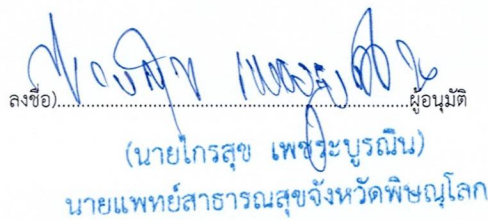 ลงชื่อ)......................................................................ผู้อนุมัติ
(นายไกรสุข เพชระบูรณิน)
นายแพทย์สาธารณสุขจังหวัดพิษณุโลก